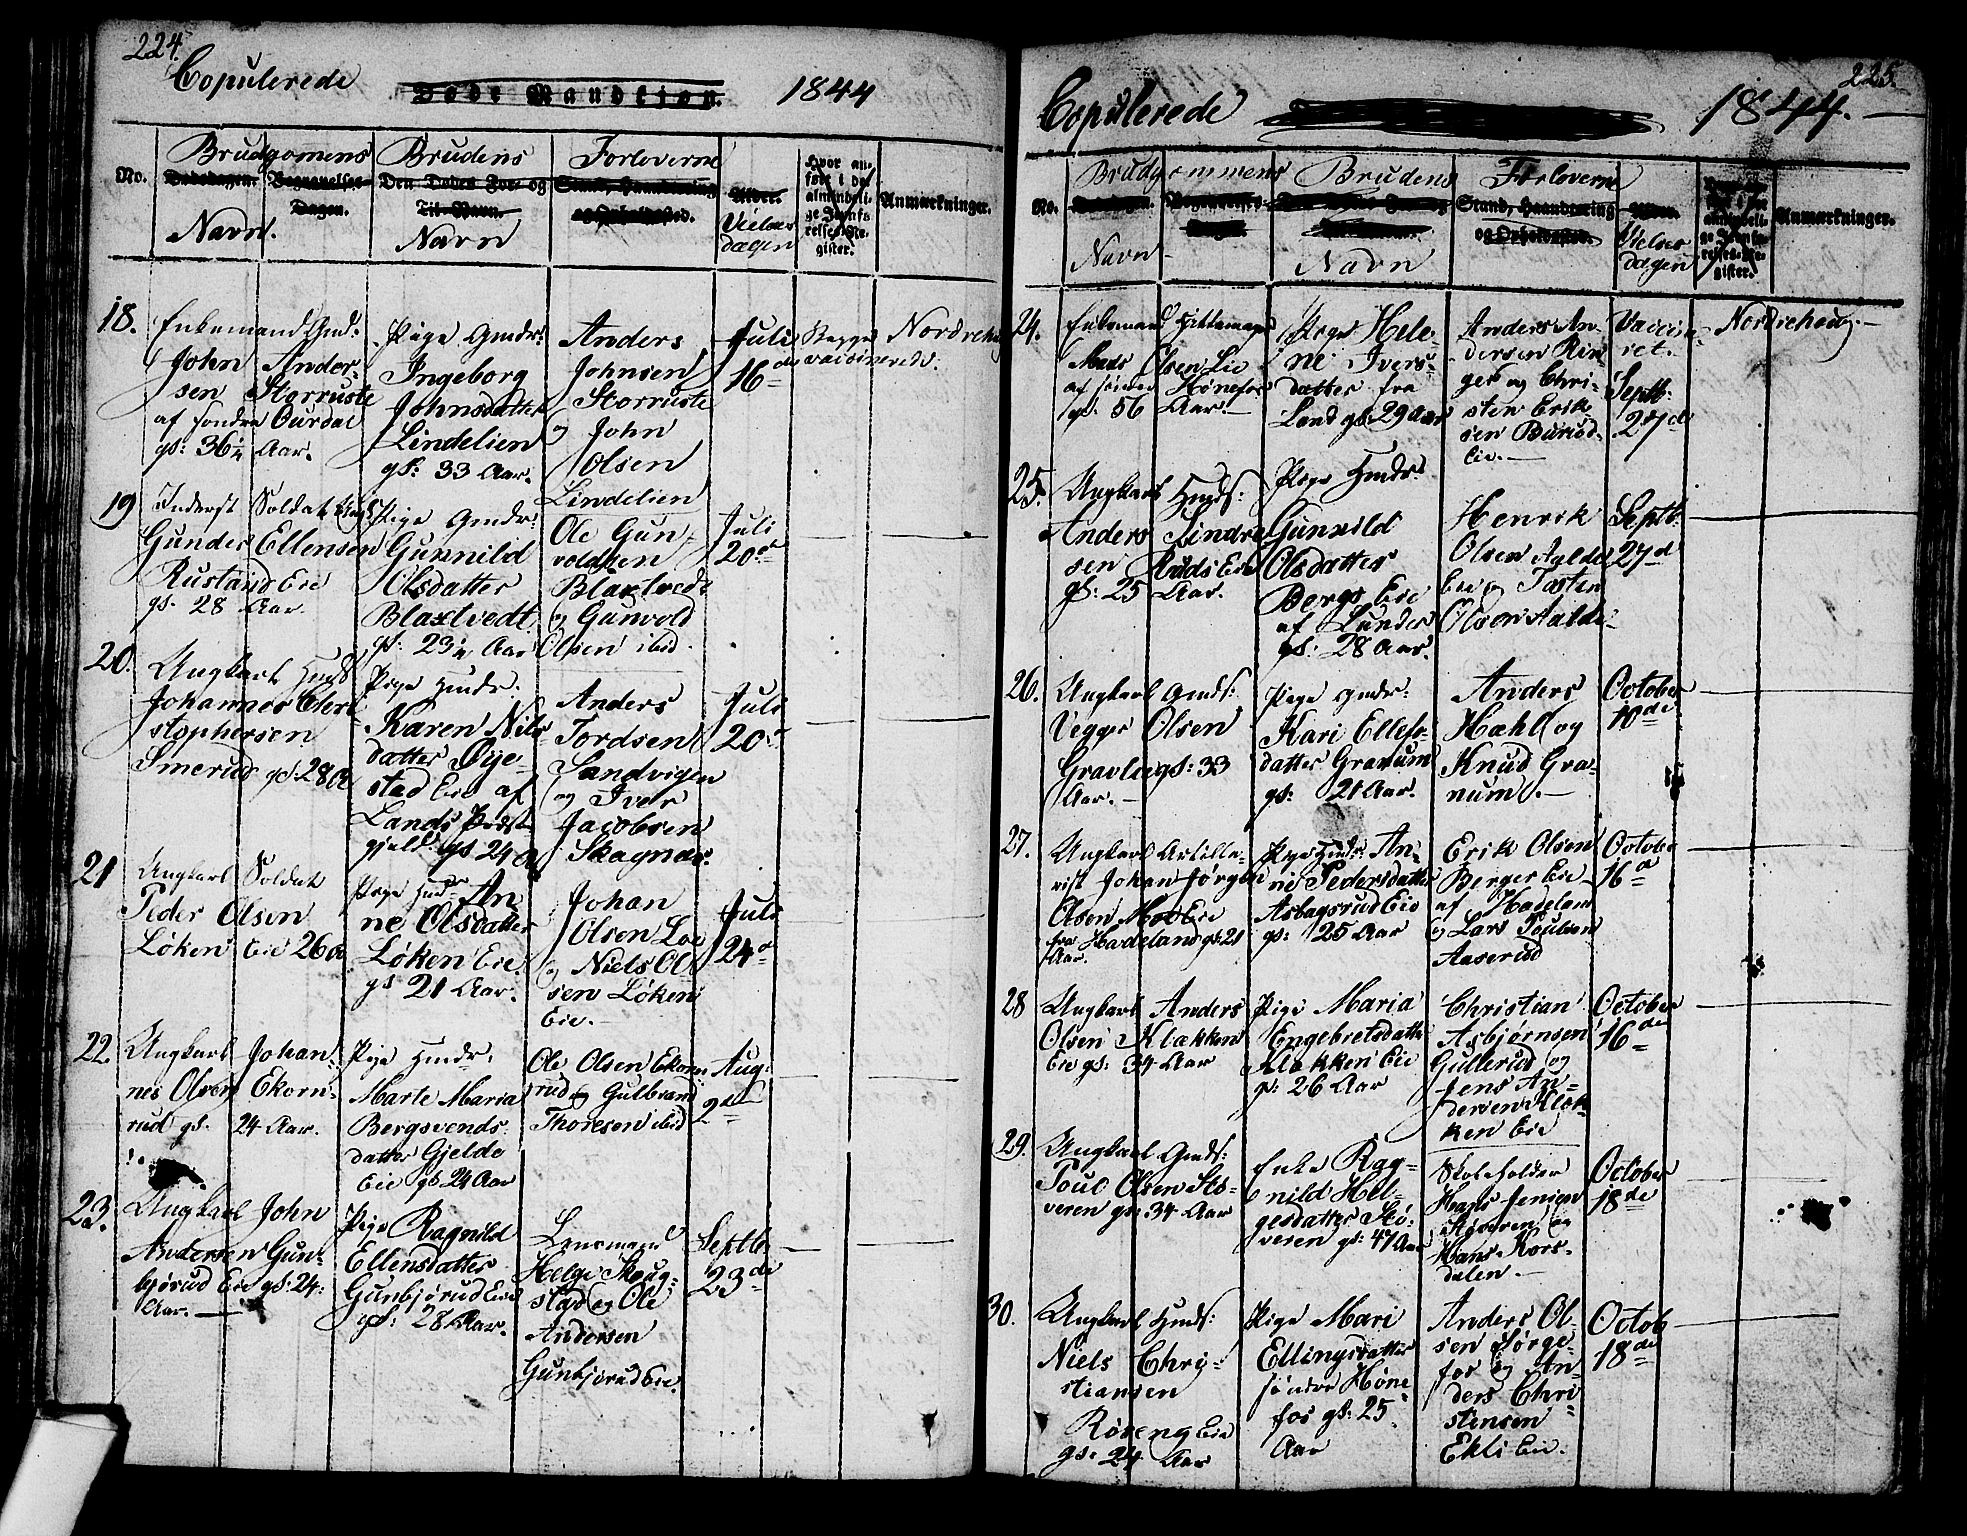 224.
Copulerede 1844
Døde Mandkjøn.
No.
Brudgomens
Navn.
Brudens
Navn
Forloverne
Vielses
dagen
Anmærkninger.
18.
Enkemand Gmd:
John Ander-
sen Storruste
af søndre Ourdal
gl: 36½ Aar.
Pige Gmdr:
Ingeborg
Johnsdatter
Lindelien
gl: 33 Aar.
Anders
Johnsen
Storruste
og John
Olsen
Lindelien
Juli
16de
Begge
vaccinerede.
Nordrehoug
19
Inderst Soldat
Gunder Ellensen
Rustand Eie
gl. 28 Aar.
Pige Gmdr:
Gunnild
Olsdatter
Blaxtvedt
gl: 23½ Aar
Ole Gun-
voldsen
Blaxtvedt
og Gunvold
Olsen ibid.
Juli
20de
20.
Ungkarl Hmds
Johannes Chri-
stophersen
Smerud gl: 28 A
Pige Hmdr:
Karen Nils-
datter Øye-
stad Eie af
Lands Præst-
gjeld gl 24 A
Anders
Tordsen
Sandvigen
og Iver
Jacobsen
Skagnæs.
Juli
20de
21
Ungkarl Soldat
Peder Olsen
Løken Eie 26 A
Pige Hmdr An-
ne Olsdatter
Løken Eie
gl 21 Aar.
Johan
Olsen Loe
og Niels Ol-
sen Løken
Eie.
Juli
24de
22.
Ungkarl Johan-
nes Olsen Ekorn-
rud gl. 24 Aar.
Pige Hmdr:
Marte Maria
Bergsvends-
datter Gjelde
Eie gl 24 Aar
Ole Olsen Ekorn-
rud og Gulbrand
Thoresen ibid
Aug:
2den
23.
Ungkarl John
Andersen Gun-
bjørud Eie gl: 24
Aar.
Pige Ragnild
Ellensdatter
Gunbjørud Eie
gl: 28 Aar.
Lensmand
Helge Skoug-
stad og Ole
Andersen
Gunbjørud Eie.
Septb
23de
225.
Copulerede 1844.
No.
Brudgommens
Navn
Brudens
Navn
Forloverne
Vielses
dagen
Anmærkninger.
24.
Enkemand Hyttemager
Mads Olsen Lie
af søndre Hønefos
gl: 56 Aar.
Pige Hele-
ne Ivers-
datter fra
Land gl: 29 Aar
Anders An-
dersen Rin-
ger og Chri-
sten Erik-
sen Burud-
Eie.
Vaccine-
ret.
Septb.
27de
Nordrehoug.
25.
Ungkarl Hmds:
Anders Lindre-
sen Huds Eie
gl: 25 Aar.
Pige Hmdr:
Gunnild
Olsdatter
Bergs Eie
af Lunder
gl: 28 Aar.
Henrik
Olsen Aalde
Eie og Tosten
Olsen Aalde
Septb.
27de
26.
Ungkarl Gmds:
Vegger Olsen
Gravlie gl: 33
Aar.
Pige Gmdr:
Kari Ellefs-
datter Granum
gl: 21 Aar.
Anders
Hæhl og
Knud Gra-
num.
October
10de
27.
Ungkarl Artille-
rist Johan Jørgen
Olsen Moe Eie
fra Hadeland gl: 21
Aar.
Pige Hmdr: An-
ne Pedersdatter
Asbagsrud Eie
gl: 25 Aar
Erik Olsen
Berger Eie
af Hadeland
og Lars Poulsen
Aaserud
October
16de
28
Ungkarl Anders
Olsen Klækken
Eie gl: 34 Aar
Pige Maria
Engebretsdatter
Klækken Eie
gl: 26 Aar
Christian
Asbjørnsen
Gullerud og
Jens An-
dersen Klæk-
ken Eie
October
16de
29.
Ungkarl Gmds:
Poul Olsen Stø-
veren gl: 34 Aar
Enke Rag-
nild Hel-
gesdatter Stø-
veren gl: 47 Aar
Skoleholder
Hans Jensen
Støveren og
Hans Kors-
dalen.
October
18de
30.
Ungkarl Hmds:
Niels Chri-
stiansen
Røseng Eie
gl. 24 Aar
Pige Mari
Ellingsdatter
søndre Høne-
fos gl: 25
Aar
Anders Ol-
sen Jørge-
fos og An-
ders Chri-
stensen
Ekli Eie.
Octob
18de